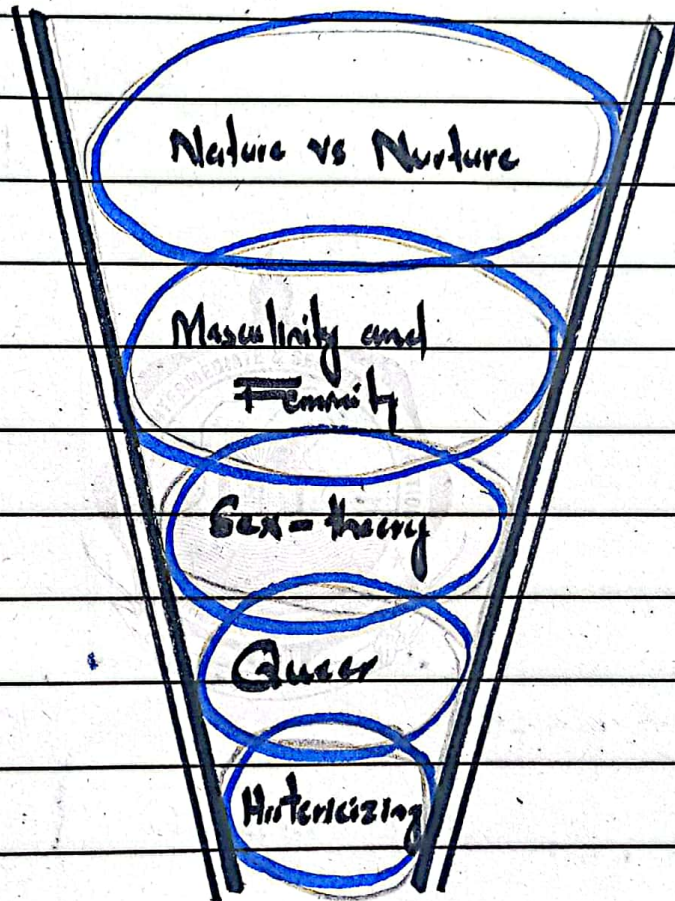 Nature vs Nurture
Masculinity and
Feminity
Sex-theory
Queer
Historicizing
INTERMEDIATE &